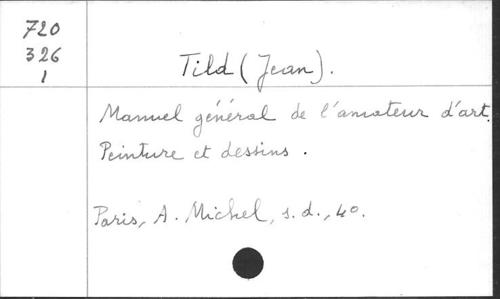 720
326
1
Tild (Jean).
Manuel général de l'amateur d'art.
Peinture et dessins.
Paris, A. Michel, s.d., 40.